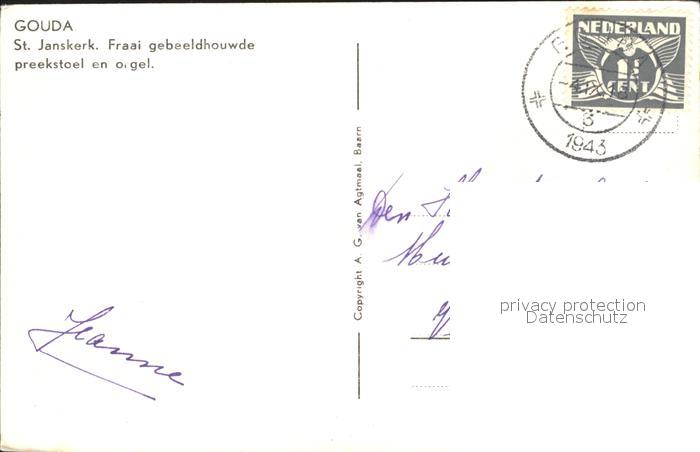 GOUDA
St. Janskerk. Fraai gebeeldhouwde
preekstoel en orgel.
NEDERLAND
1½
CENT
1943
Copyright A. G. van Agtmaal, Baarn
Den
privacy protection
Datenschutz
Jeanne